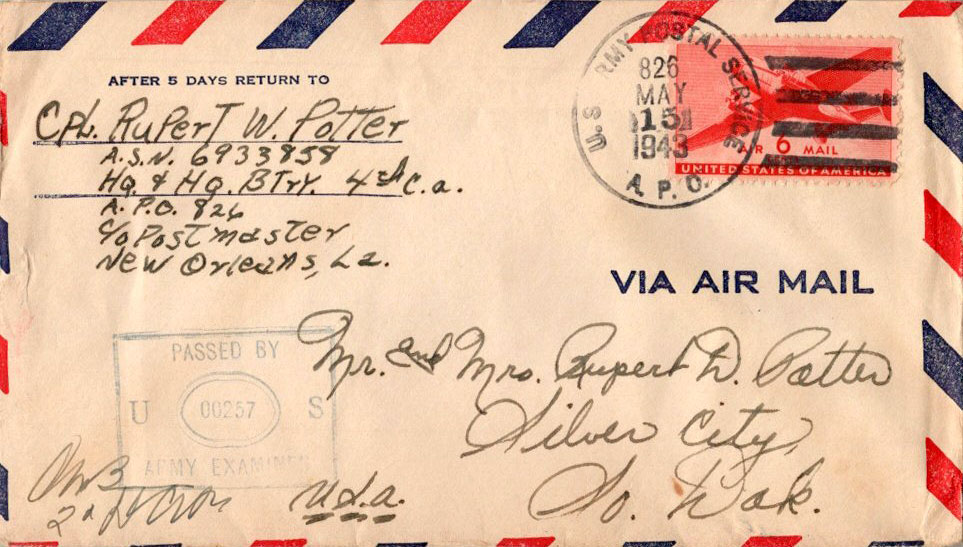 AFTER 5 DAYS RETURN TO
CPL. RuperT W. Potter
A.S.N. 6933858
Hq. & Hq. BTry. 4th C.a.
A.P.O. 826
c/o PosTmasTer
New Orleans, La.
U.S ARMY POSTAL SERVICE
826
MAY
15
1943
A.P.O.
AIR 6 MAIL
UNITED STATES OF AMERICA
VIA AIR MAIL
Mr. and Mrs. Rupert D. Potter
Silver City
So. Dak.
U.S.A.
PASSED BY
U 00257 S
ARMY EXAMINER